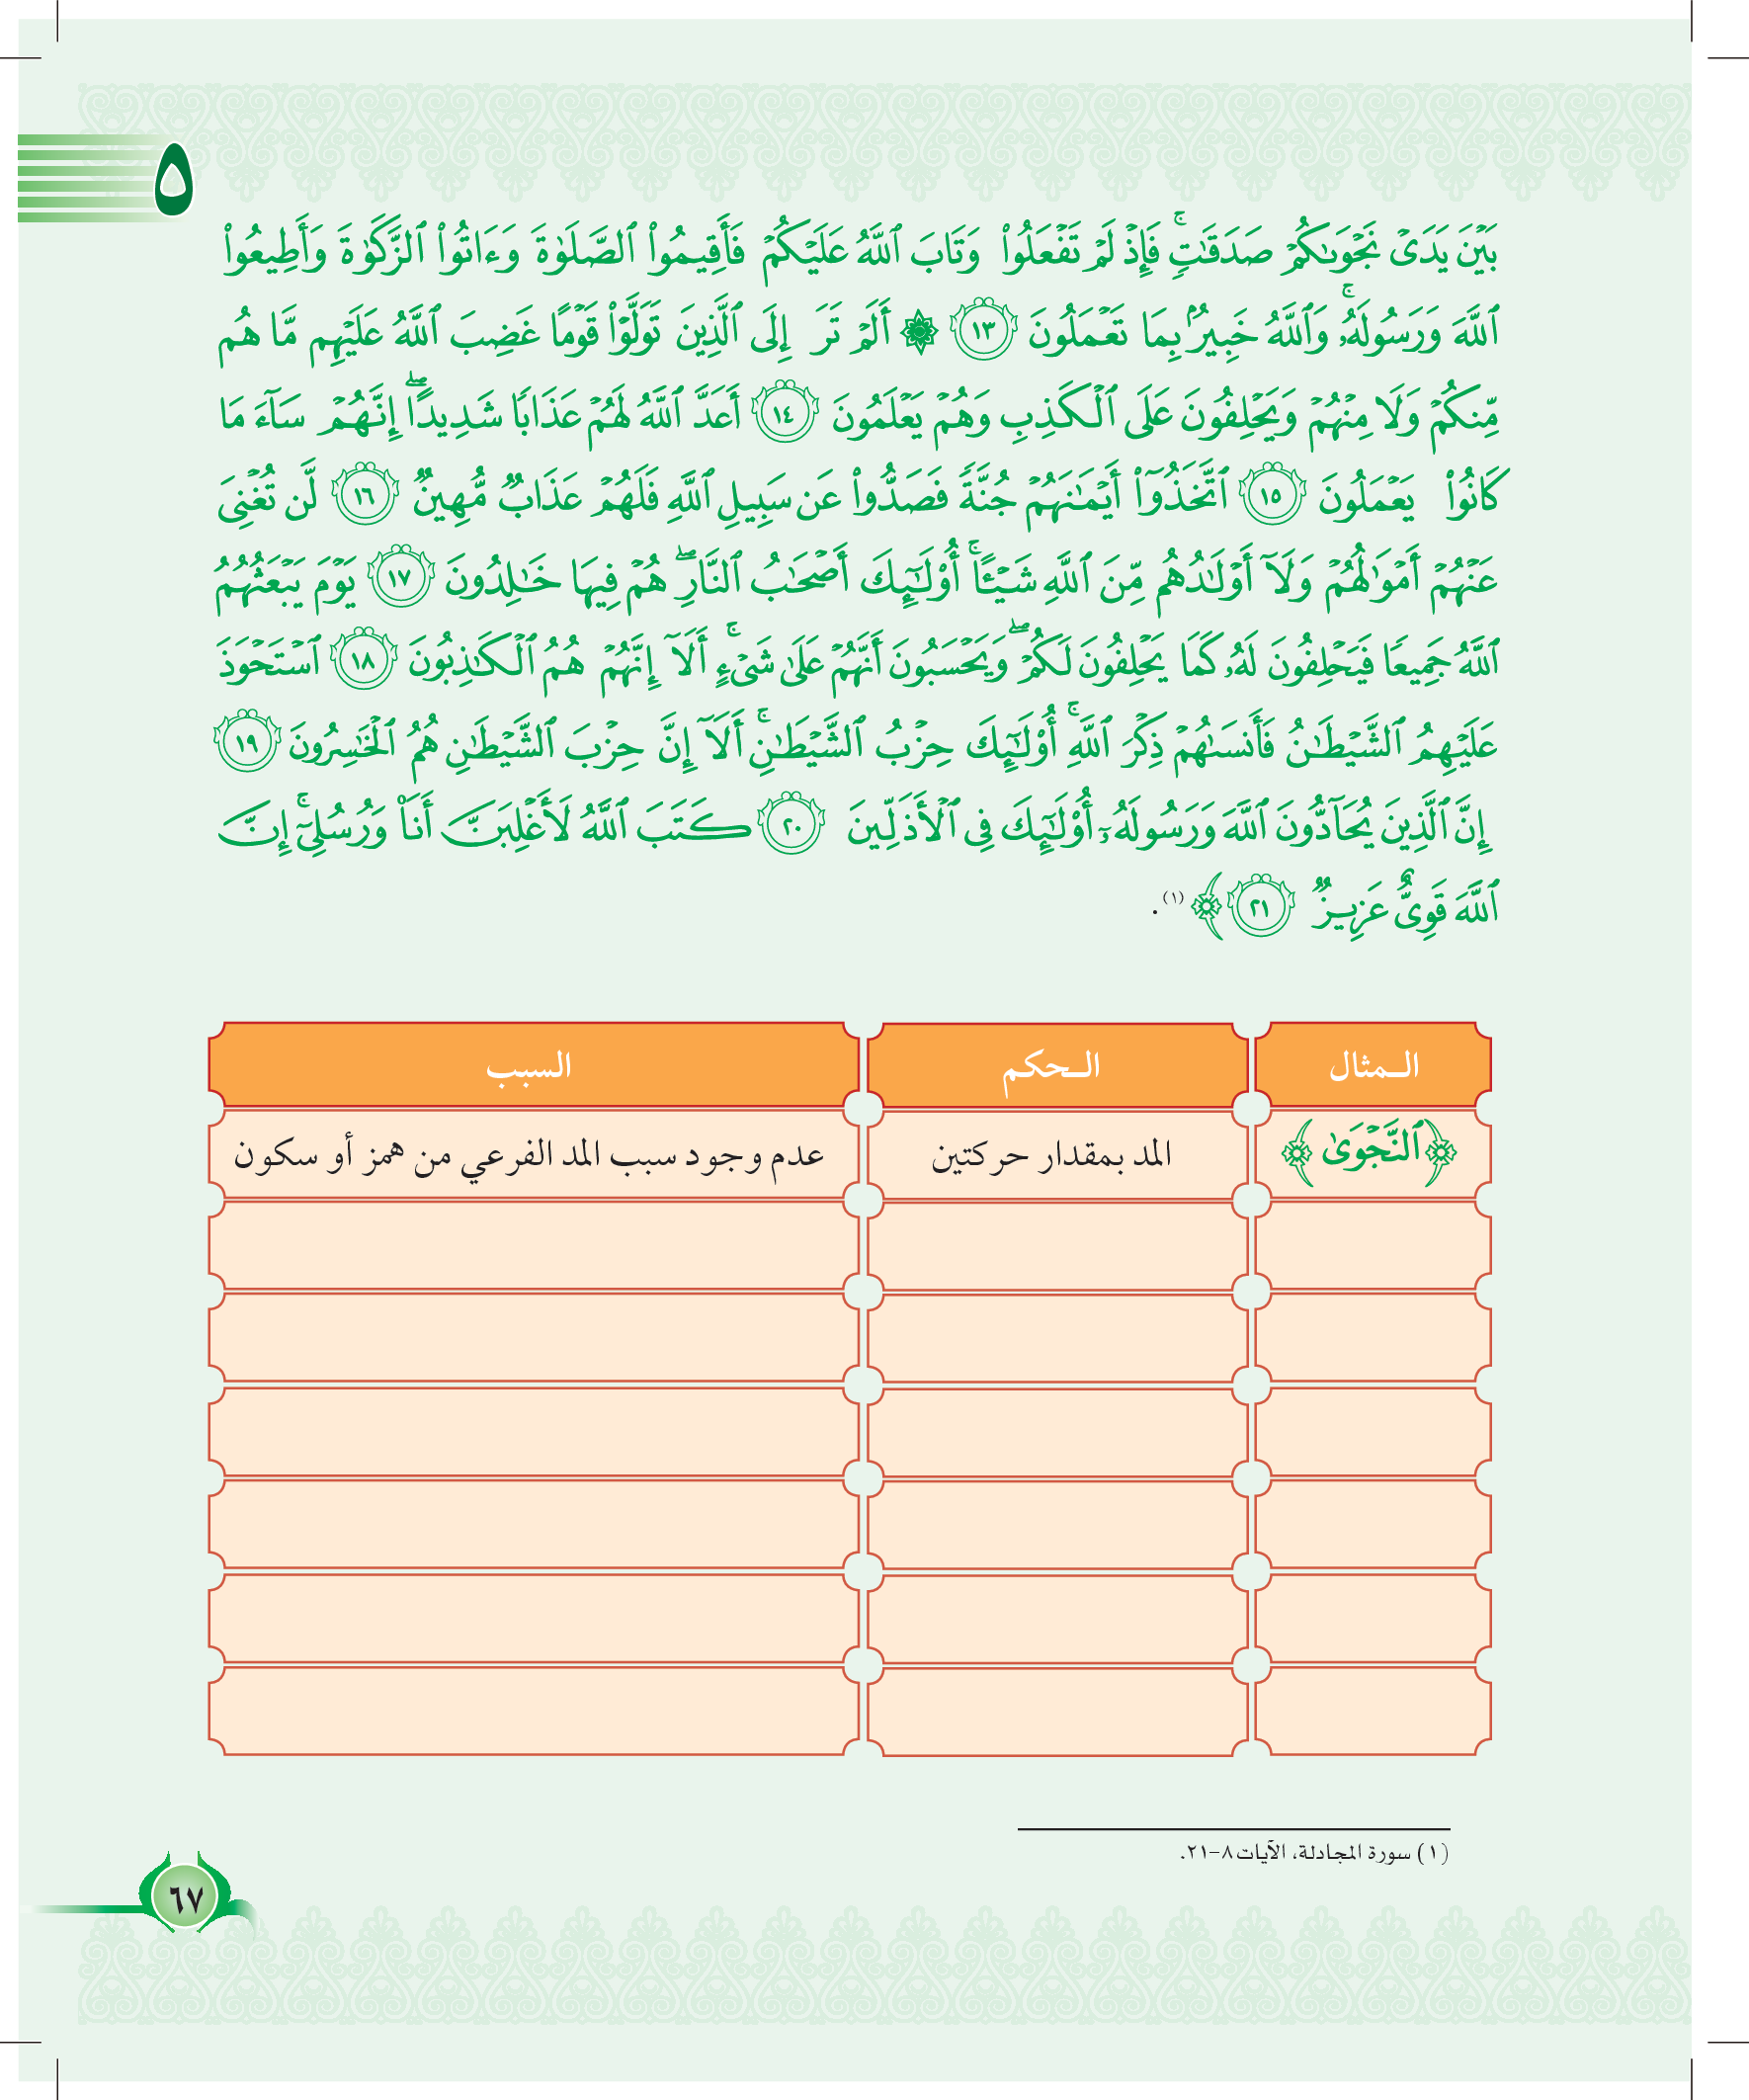 ٥
بَيْنَ يَدَىْ نَجْوَىٰكُمْ صَدَقَٰتٍۚ فَإِذْ لَمْ تَفْعَلُوا۟ وَتَابَ ٱللَّهُ عَلَيْكُمْ فَأَقِيمُوا۟ ٱلصَّلَوٰةَ وَءَاتُوا۟ ٱلزَّكَوٰةَ وَأَطِيعُوا۟
ٱللَّهَ وَرَسُولَهُۥۚ وَٱللَّهُ خَبِيرٌۢ بِمَا تَعْمَلُونَ ١٣ ۞ أَلَمْ تَرَ إِلَى ٱلَّذِينَ تَوَلَّوْا۟ قَوْمًا غَضِبَ ٱللَّهُ عَلَيْهِم مَّا هُم
مِّنكُمْ وَلَا مِنْهُمْ وَيَحْلِفُونَ عَلَى ٱلْكَذِبِ وَهُمْ يَعْلَمُونَ ١٤ أَعَدَّ ٱللَّهُ لَهُمْ عَذَابًا شَدِيدًاۖ إِنَّهُمْ سَآءَ مَا
كَانُوا۟ يَعْمَلُونَ ١٥ ٱتَّخَذُوٓا۟ أَيْمَٰنَهُمْ جُنَّةً فَصَدُّوا۟ عَن سَبِيلِ ٱللَّهِ فَلَهُمْ عَذَابٌ مُّهِينٌ ١٦ لَّن تُغْنِىَ
عَنْهُمْ أَمْوَٰلُهُمْ وَلَآ أَوْلَٰدُهُم مِّنَ ٱللَّهِ شَيْـًٔاۚ أُو۟لَٰٓئِكَ أَصْحَٰبُ ٱلنَّارِۖ هُمْ فِيهَا خَٰلِدُونَ ١٧ يَوْمَ يَبْعَثُهُمُ
ٱللَّهُ جَمِيعًا فَيَحْلِفُونَ لَهُۥ كَمَا يَحْلِفُونَ لَكُمْۖ وَيَحْسَبُونَ أَنَّهُمْ عَلَىٰ شَىْءٍۚ أَلَآ إِنَّهُمْ هُمُ ٱلْكَٰذِبُونَ ١٨ ٱسْتَحْوَذَ
عَلَيْهِمُ ٱلشَّيْطَٰنُ فَأَنسَىٰهُمْ ذِكْرَ ٱللَّهِۚ أُو۟لَٰٓئِكَ حِزْبُ ٱلشَّيْطَٰنِۚ أَلَآ إِنَّ حِزْبَ ٱلشَّيْطَٰنِ هُمُ ٱلْخَٰسِرُونَ ١٩
إِنَّ ٱلَّذِينَ يُحَآدُّونَ ٱللَّهَ وَرَسُولَهُۥٓ أُو۟لَٰٓئِكَ فِى ٱلْأَذَلِّينَ ٢٠ كَتَبَ ٱللَّهُ لَأَغْلِبَنَّ أَنَا۠ وَرُسُلِىٓۚ إِنَّ
ٱللَّهَ قَوِىٌّ عَزِيزٌ ٢١ ﴾ (١).
المثال الحكم السبب
﴿ ٱلنَّجْوَىٰ ﴾ المد بمقدار حركتين عدم وجود سبب المد الفرعي من همز أو سكون
(١) سورة المجادلة، الآيات ٨-٢١.
٦٧